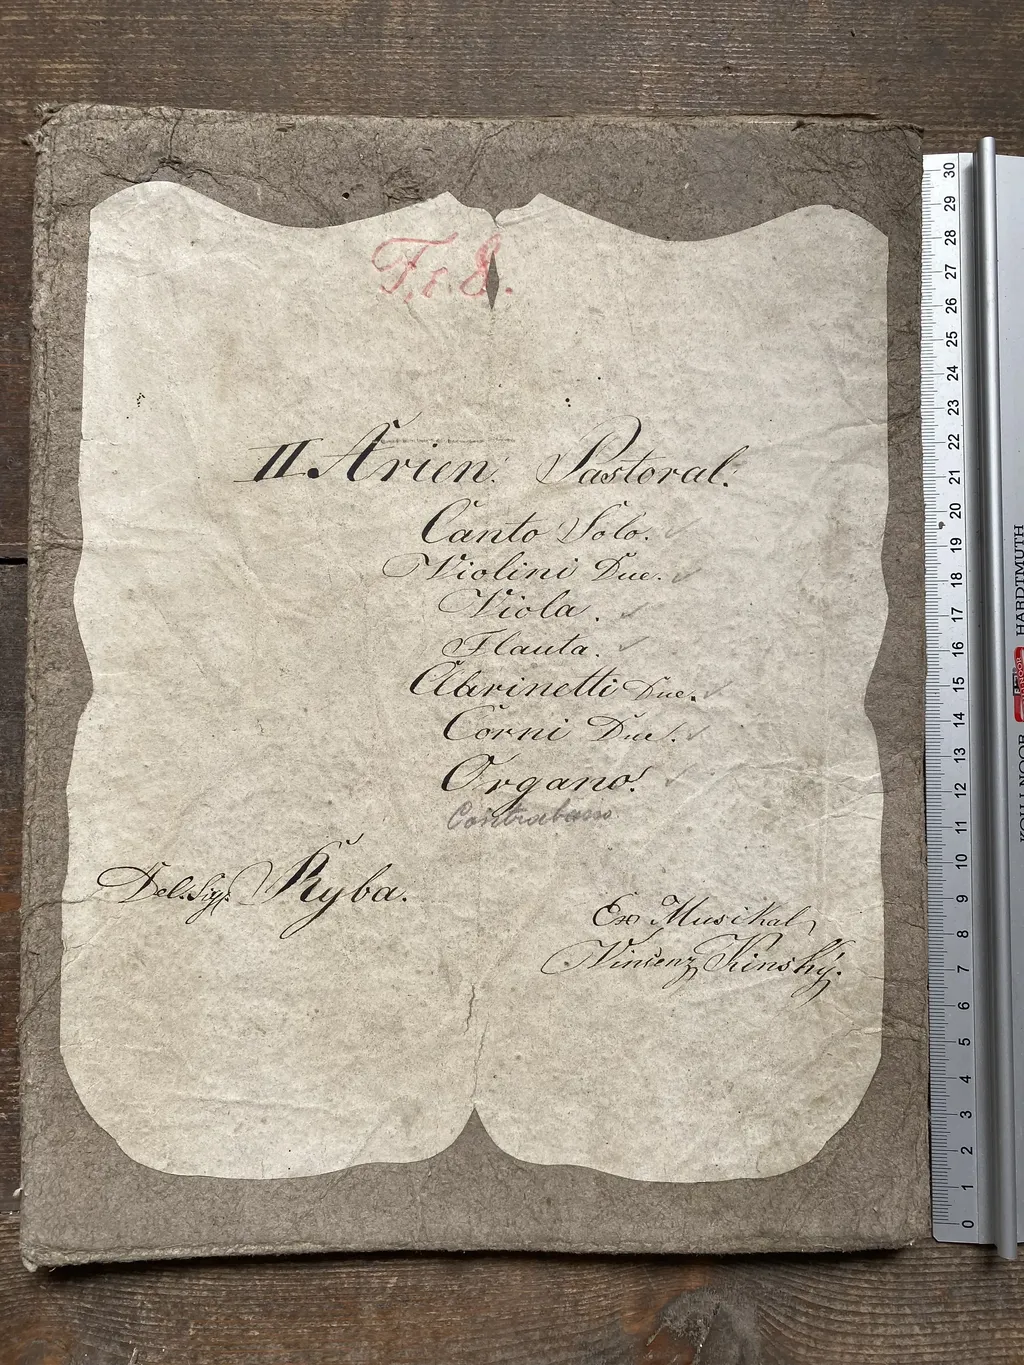 F. 8.
II Arien. Pastoral.
Canto Solo.
Violini Due.
Viola.
Flauta.
Clarinetti Due.
Corni Due.
Organo.
Contrabass
Del. Sig. Ryba.
Ex Musikal
Vinsenz Kinský.
30
29
28
27
26
25
24
23
22
21
20
19
18
17
16
15
14
13
12
11
10
9
8
7
6
5
4
3
2
1
0
KOH-I-NOOR HARDTMUTH